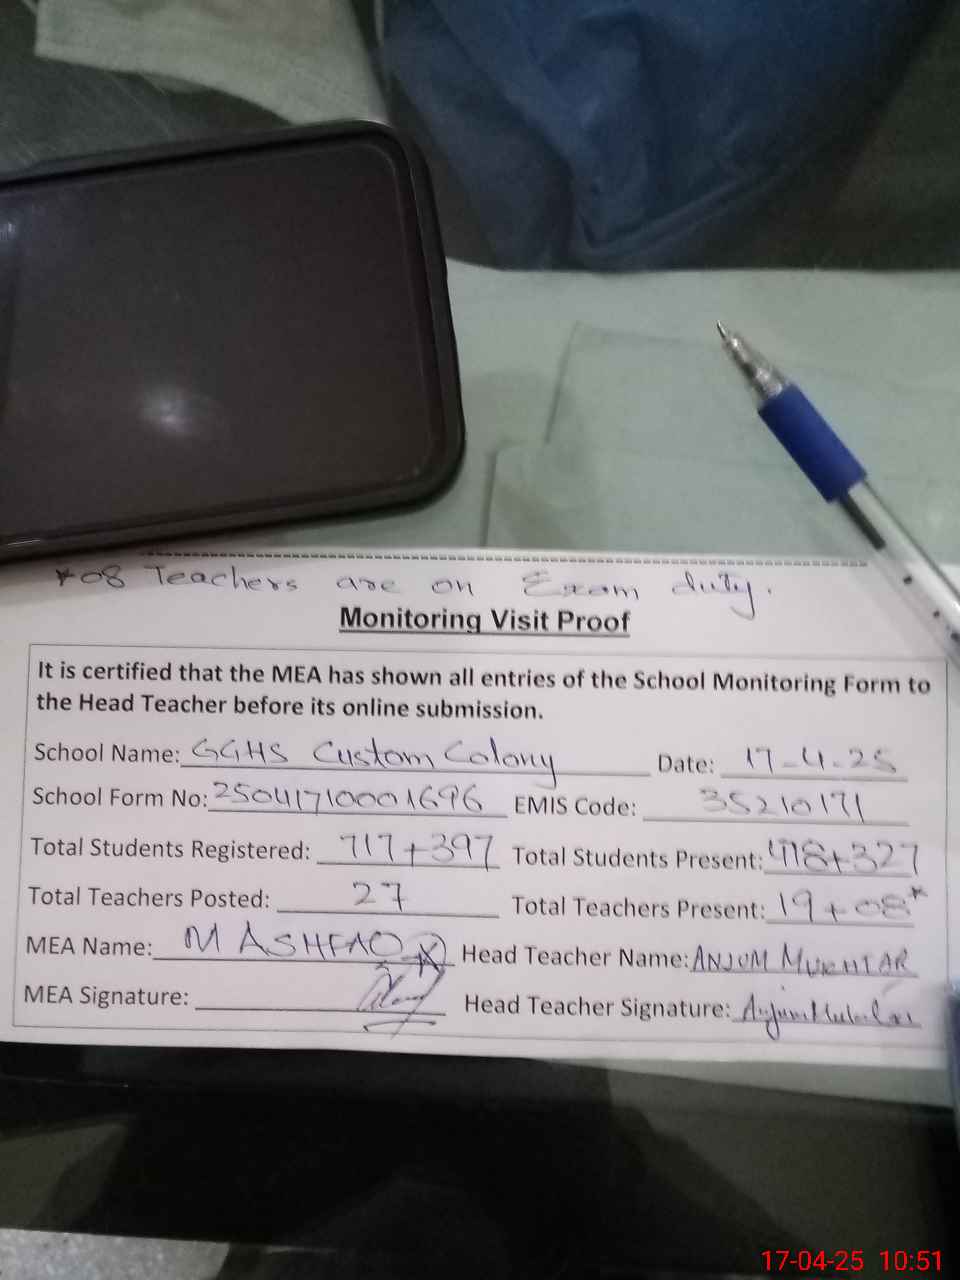 *08 Teachers are on Exam duty.
Monitoring Visit Proof
It is certified that the MEA has shown all entries of the School Monitoring Form to
the Head Teacher before its online submission.
School Name: GGHS Custom Colony Date: 17-4-25
School Form No: 25041710001696 EMIS Code: 35210171
Total Students Registered: 717+397 Total Students Present: 418+327
Total Teachers Posted: 27 Total Teachers Present: 19+08*
MEA Name: M ASHFAQ Head Teacher Name: ANJUM MUKHTAR
MEA Signature: Head Teacher Signature: Anjum Mukhtar
17-04-25 10:51